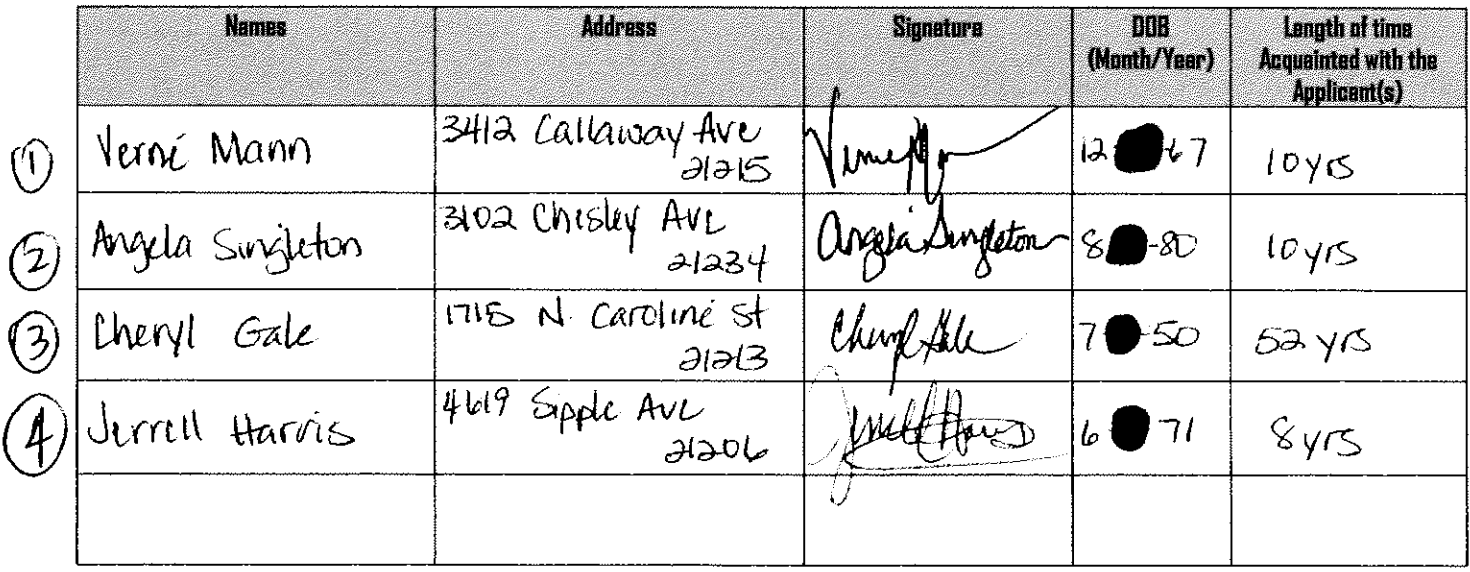 Names Address Signature DOB (Month/Year) Length of time Acquainted with the Applicant(s)
1 Verné Mann 3412 Callaway Ave 21215 12 67 10 yrs
2 Angela Singleton 3102 Chesley Ave 21234 Angela Singleton 8 -80 10 yrs
3 Cheryl Gale 1715 N. Caroline St 21213 Cheryl Gale 7 -50 52 yrs
4 Jerrell Harris 4619 Sipple Ave 21206 6 71 8 yrs